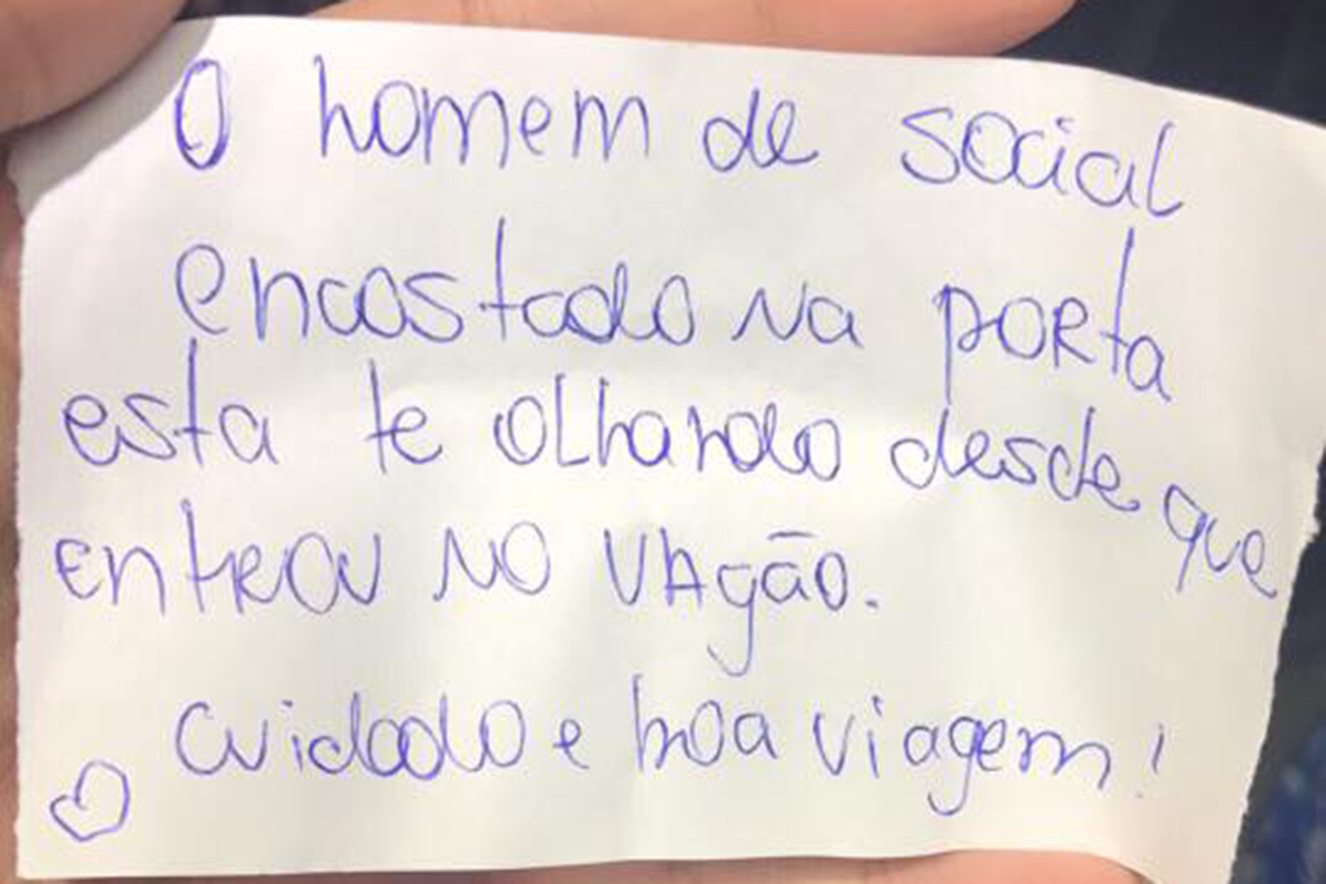 O homem de social
encostado na porta
esta te olhando desde que
entrou no vagão.
cuidado e boa viagem!